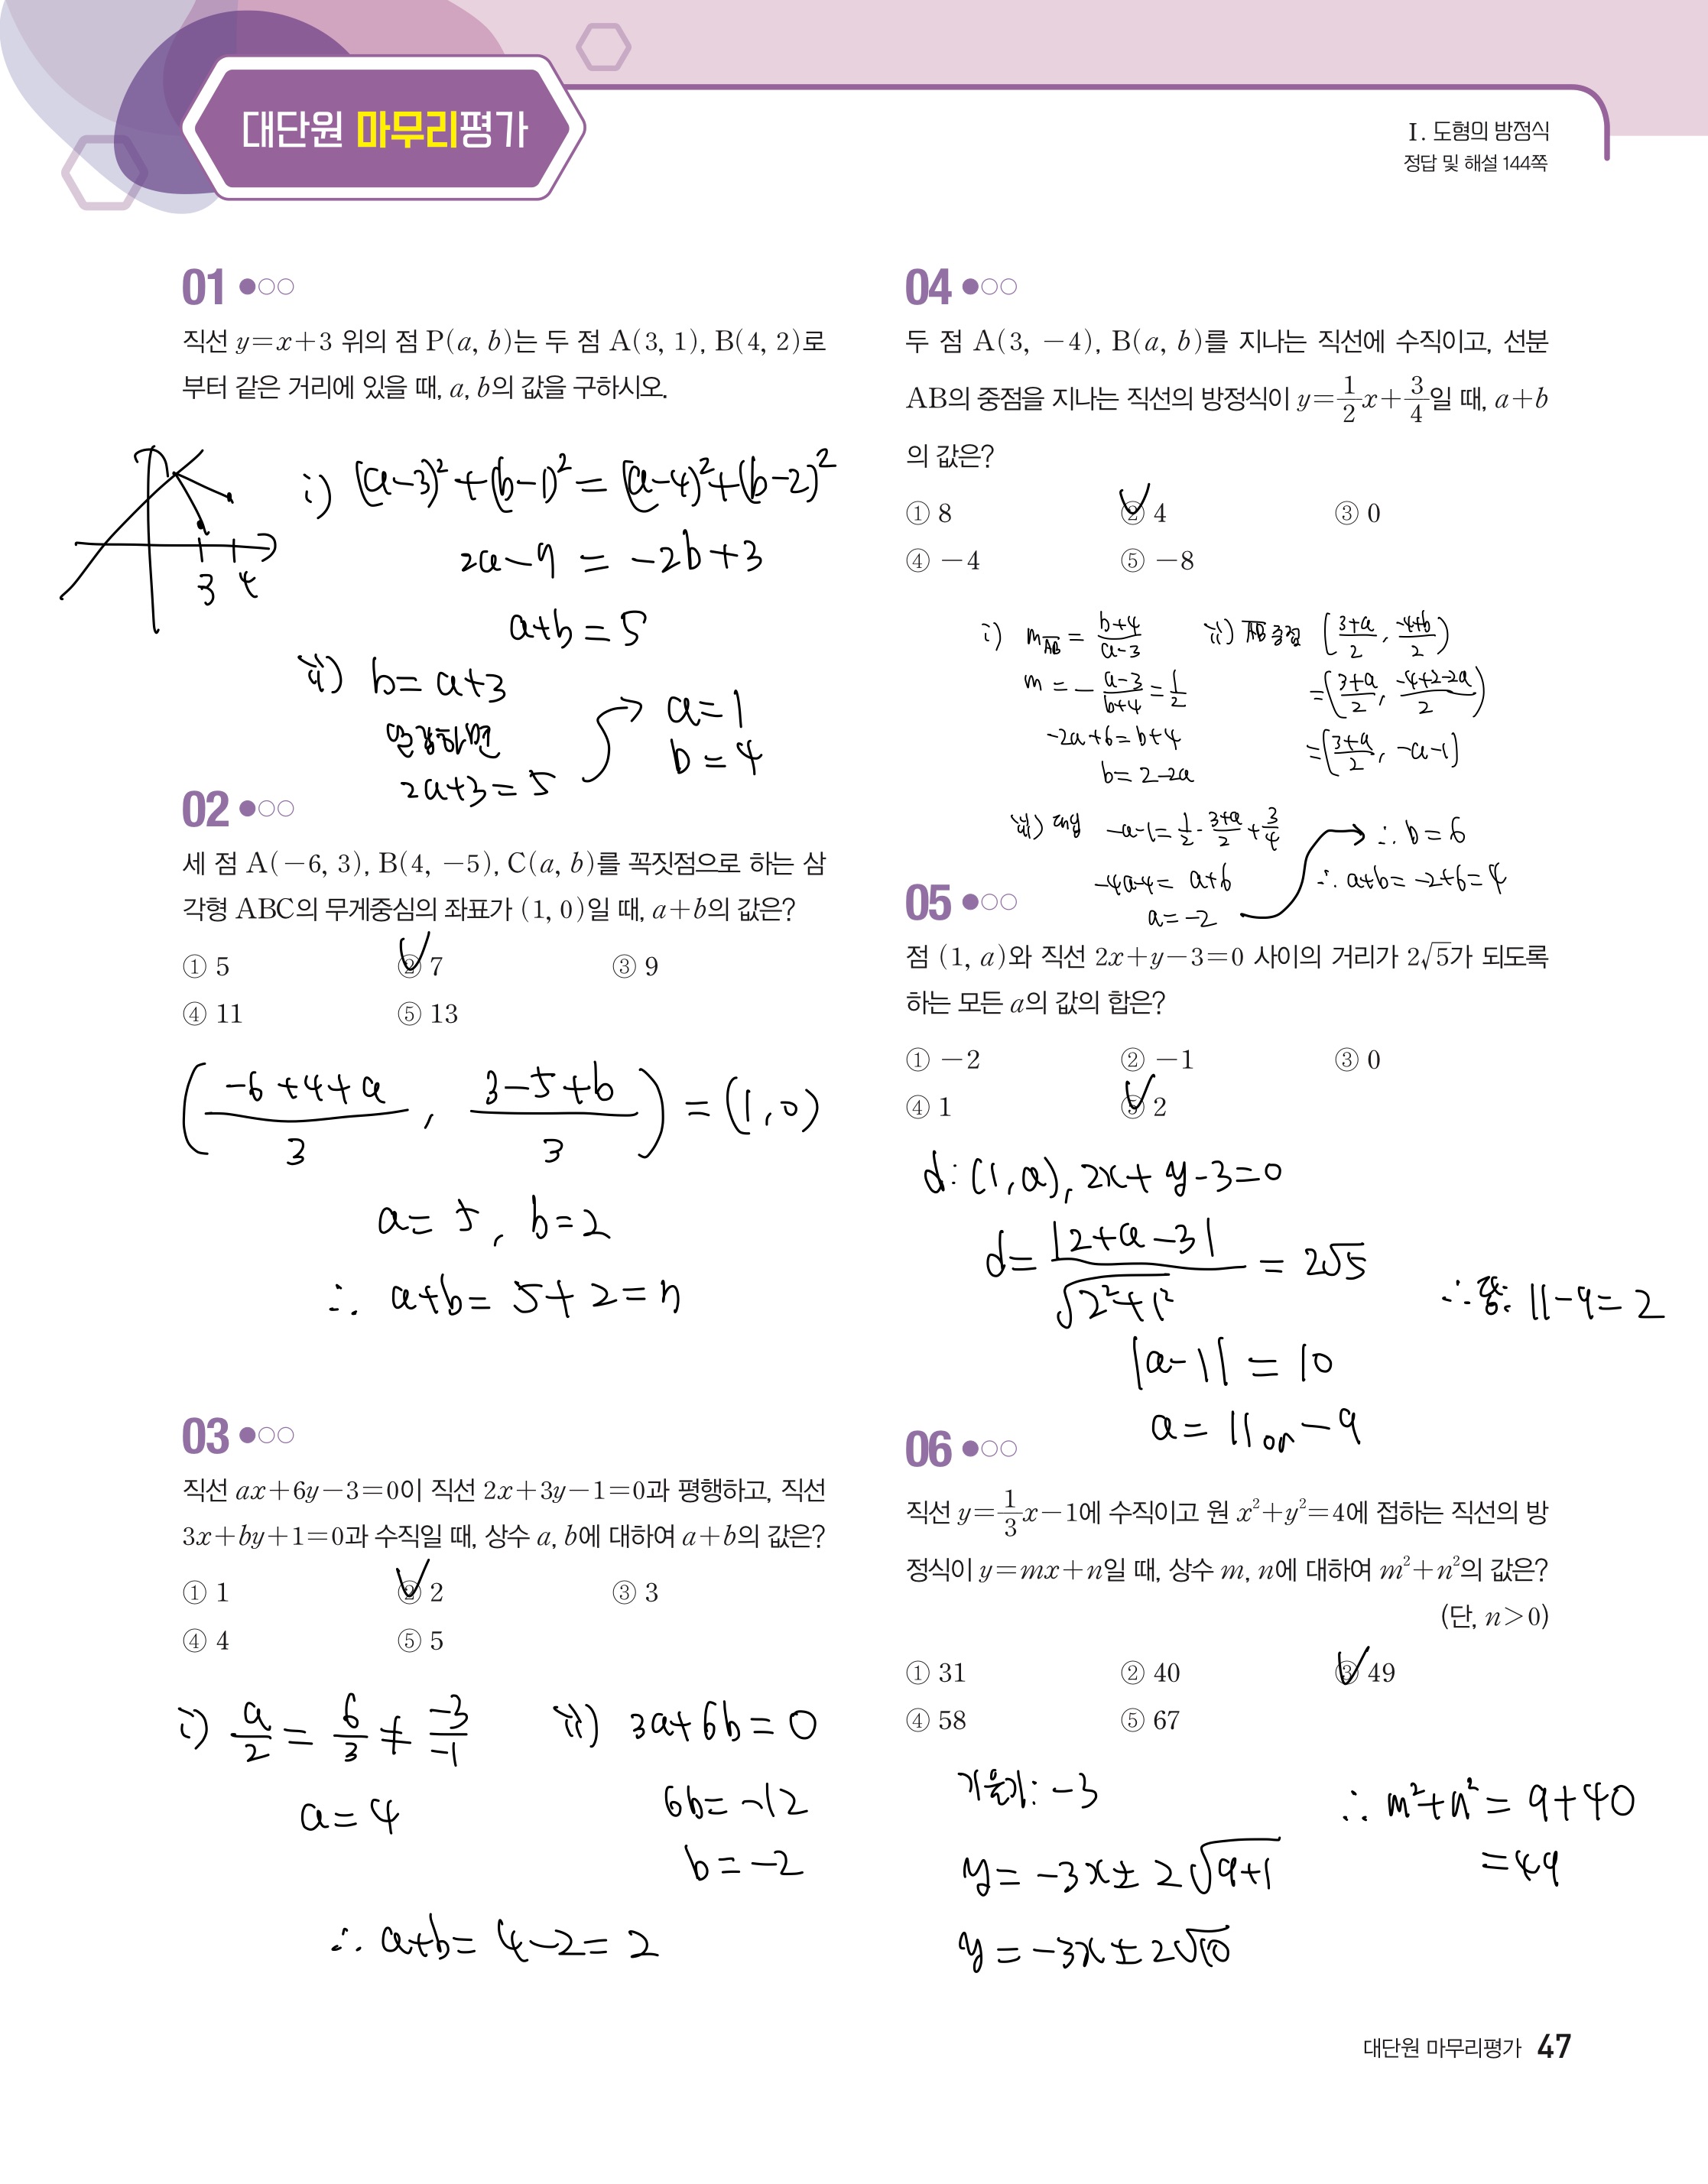 대단원 마무리평가
Ⅰ. 도형의 방정식
정답 및 해설 144쪽
01
직선 y=x+3 위의 점 P(a, b)는 두 점 A(3, 1), B(4, 2)로
부터 같은 거리에 있을 때, a, b의 값을 구하시오.
3 4
i) (a-3)²+(b-1)²=(a-4)²+(b-2)²
2a-9=-2b+3
a+b=5
ii) b=a+3
연립하면
2a+3=5
a=1
b=4
02
세 점 A(-6, 3), B(4, -5), C(a, b)를 꼭짓점으로 하는 삼
각형 ABC의 무게중심의 좌표가 (1, 0)일 때, a+b의 값은?
① 5 ② 7 ③ 9
④ 11 ⑤ 13
((-6+4+a)/3, (3-5+b)/3)=(1,0)
a=5, b=2
∴ a+b=5+2=7
03
직선 ax+6y-3=0이 직선 2x+3y-1=0과 평행하고, 직선
3x+by+1=0과 수직일 때, 상수 a, b에 대하여 a+b의 값은?
① 1 ② 2 ③ 3
④ 4 ⑤ 5
i) a/2=6/3≠-3/-1
a=4
ii) 3a+6b=0
6b=-12
b=-2
∴ a+b=4-2=2
04
두 점 A(3, -4), B(a, b)를 지나는 직선에 수직이고, 선분
AB의 중점을 지나는 직선의 방정식이 y=1/2x+3/4일 때, a+b
의 값은?
① 8 ② 4 ③ 0
④ -4 ⑤ -8
i) m_AB=(b+4)/(a-3)
m=-(a-3)/(b+4)=1/2
-2a+6=b+4
b=2-2a
ii) AB 중점 ((3+a)/2, (-4+b)/2)
=((3+a)/2, (-4+2-2a)/2)
=((3+a)/2, -a-1)
iii) 대입 -a-1=1/2·(3+a)/2+3/4
-4a-4=a+6
a=-2
∴ b=6
∴ a+b=-2+6=4
05
점 (1, a)와 직선 2x+y-3=0 사이의 거리가 2√5가 되도록
하는 모든 a의 값의 합은?
① -2 ② -1 ③ 0
④ 1 ⑤ 2
d: (1,a), 2x+y-3=0
d=|2+a-3|/√(2²+1²)=2√5
|a-1|=10
a=11 or -9
∴ 합: 11-9=2
06
직선 y=1/3x-1에 수직이고 원 x²+y²=4에 접하는 직선의 방
정식이 y=mx+n일 때, 상수 m, n에 대하여 m²+n²의 값은?
(단, n>0)
① 31 ② 40 ③ 49
④ 58 ⑤ 67
기울기: -3
y=-3x±2√(9+1)
y=-3x±2√10
∴ m²+n²=9+40
=49
대단원 마무리평가 47